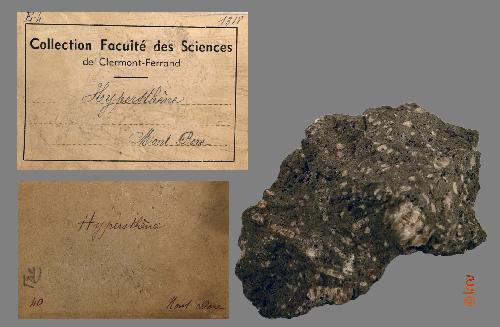 1318
Collection Faculté des Sciences
de Clermont-Ferrand
Hypersthène
Mont Dore
Hypersthène
40
Mont Dore